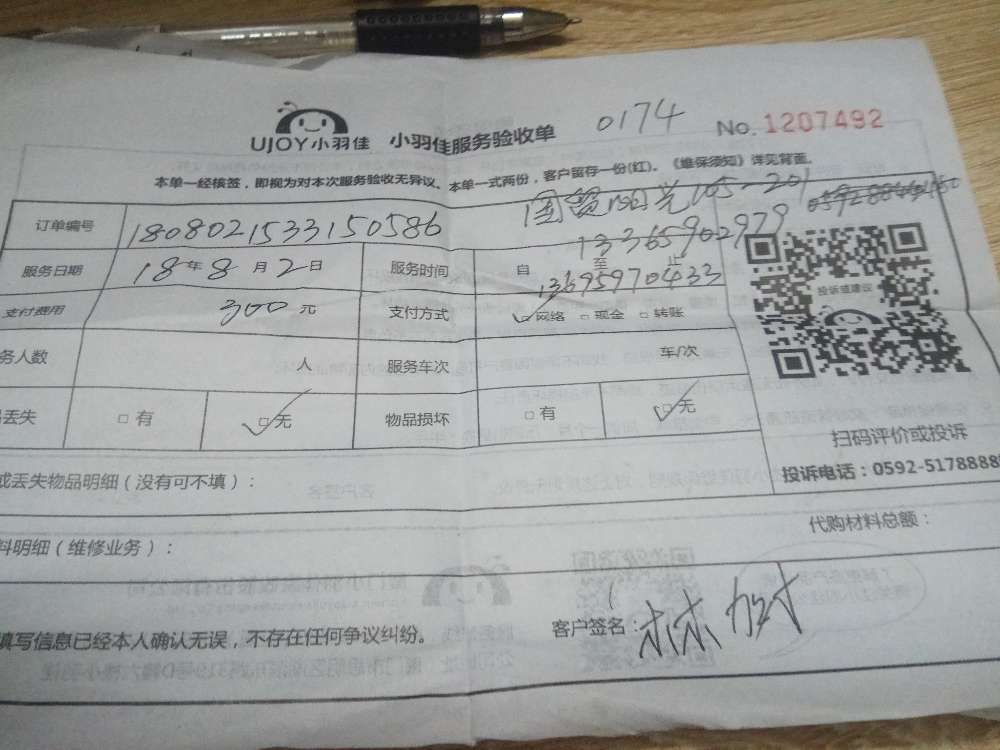 UJOY小羽佳 小羽佳服务验收单 0174 No. 1207492
本单一经核签，即视为对本次服务验收无异议。本单一式两份，客户留存一份(红)。《维保须知》详见背面。
国贸阳光105-201
订单编号 1808021533150586 13365902979
服务日期 18年8月2日 服务时间 自 至 止
13695970433
支付费用 300元 支付方式 ☑网络 □现金 □转账
务人数 人 服务车次 车/次
丢失 □有 ☑无 物品损坏 □有 ☑无
投诉或建议
扫码评价或投诉
投诉电话：0592-5178888
或丢失物品明细（没有可不填）：
代购材料总额：
料明细（维修业务）：
填写信息已经本人确认无误，不存在任何争议纠纷。 客户签名：林